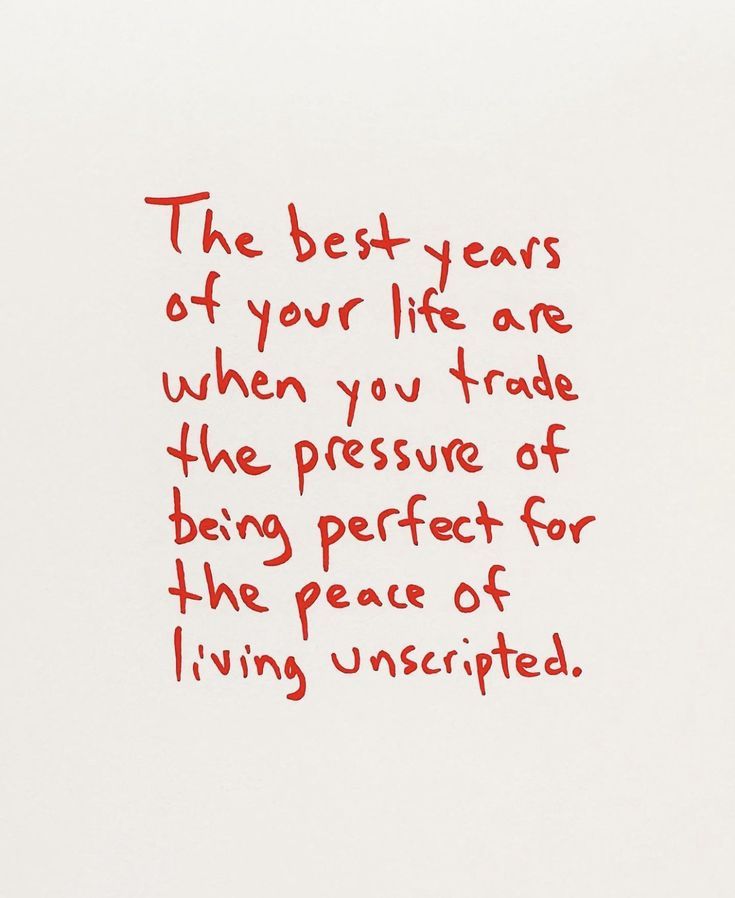 The best years
of your life are
when you trade
the pressure of
being perfect for
the peace of
living unscripted.